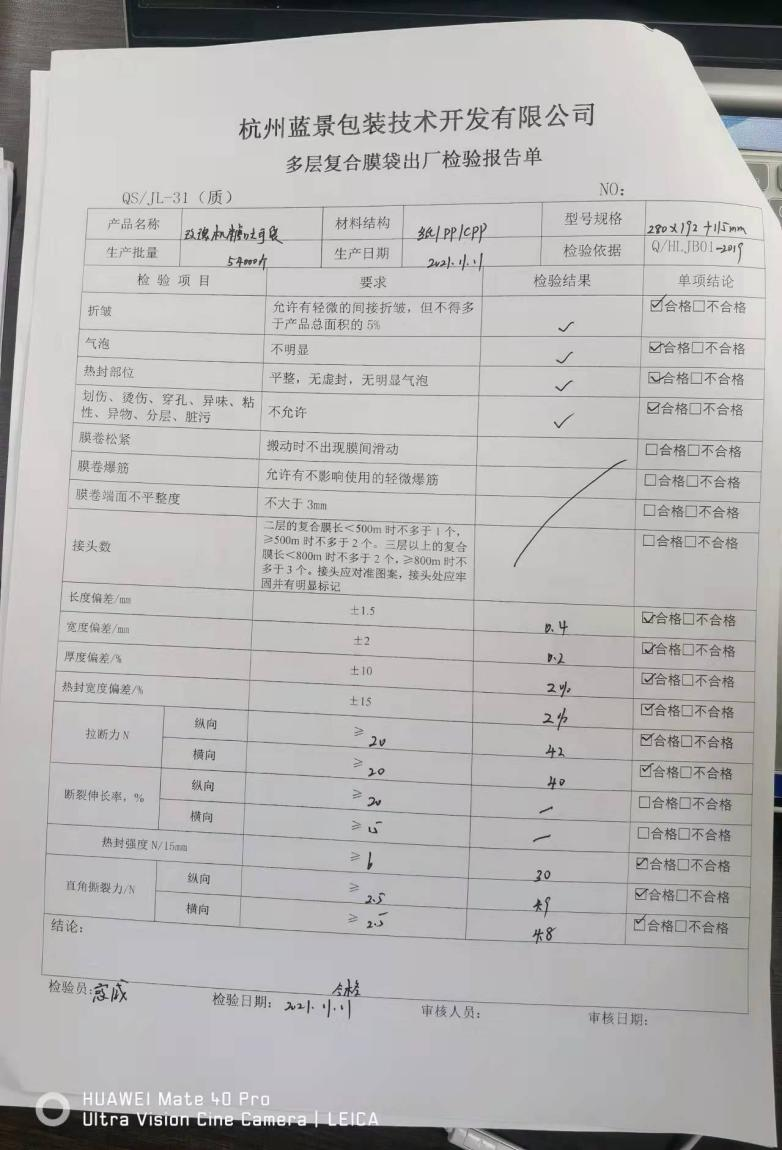 杭州蓝景包装技术开发有限公司
多层复合膜袋出厂检验报告单
QS/JL-31（质） NO：
产品名称 材料结构 纸/PP/CPP 型号规格 280×192+115mm
生产批量 54000个 生产日期 2021.11.11 检验依据 Q/HLJB01-2019
检 验 项 目 要求 检验结果 单项结论
折皱 允许有轻微的间接折皱，但不得多于产品总面积的5% ✓ ☑合格☐不合格
气泡 不明显 ✓ ☑合格☐不合格
热封部位 平整，无虚封，无明显气泡 ✓ ☑合格☐不合格
划伤、烫伤、穿孔、异味、粘性、异物、分层、脏污 不允许 ✓ ☑合格☐不合格
膜卷松紧 搬动时不出现膜间滑动 ☐合格☐不合格
膜卷爆筋 允许有不影响使用的轻微爆筋 ☐合格☐不合格
膜卷端面不平整度 不大于3mm ☐合格☐不合格
接头数 二层的复合膜长<500m时不多于1个，≥500m时不多于2个。三层以上的复合膜长<800m时不多于2个，≥800m时不多于3个。接头应对准图案，接头处应牢固并有明显标记 ☐合格☐不合格
长度偏差/mm ±1.5 0.4 ☑合格☐不合格
宽度偏差/mm ±2 0.2 ☑合格☐不合格
厚度偏差/% ±10 2% ☑合格☐不合格
热封宽度偏差/% ±15 2% ☑合格☐不合格
拉断力N 纵向 ≥20 42 ☑合格☐不合格
横向 ≥20 40 ☑合格☐不合格
断裂伸长率，% 纵向 ≥20 — ☐合格☐不合格
横向 ≥15 — ☐合格☐不合格
热封强度N/15mm ≥6 30 ☑合格☐不合格
直角撕裂力/N 纵向 ≥2.5 4.9 ☑合格☐不合格
横向 ≥2.5 4.8 ☑合格☐不合格
结论：
合格
检验员： 检验日期：2021.11.11 审核人员： 审核日期：
HUAWEI Mate 40 Pro
Ultra Vision Cine Camera | LEICA